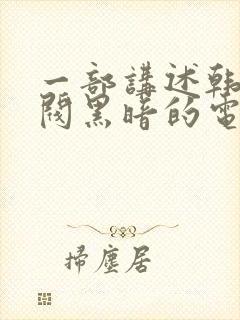 一部講述韩
閥黑暗的電
掃塵居